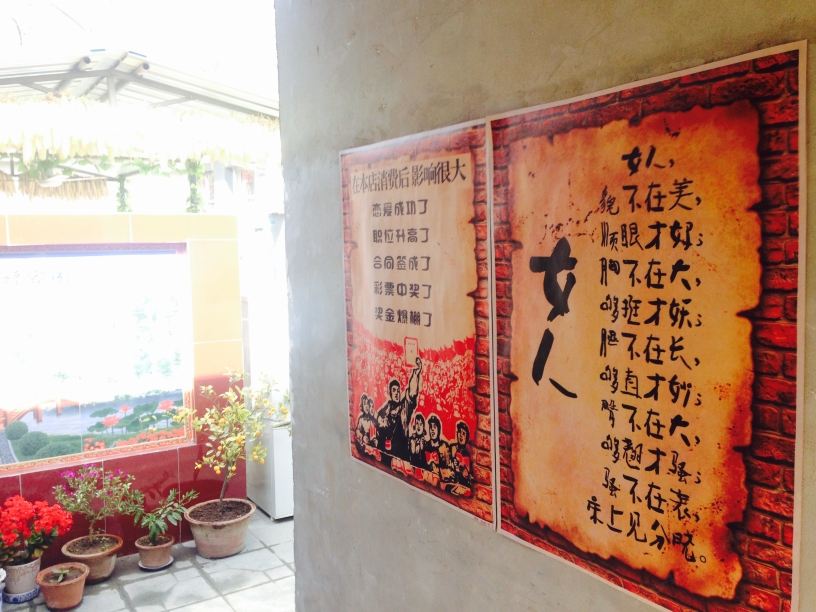 在本店消费后影响很大
恋爱成功了
职位升高了
合同签成了
彩票中奖了
奖金爆棚了
女人
女人，
貌不在美，
顺眼才好；
胸不在大，
够挺才妖；
腿不在长，
够直才妙；
臀不在大，
够翘才骚；
骚不在装，
床上见分晓。